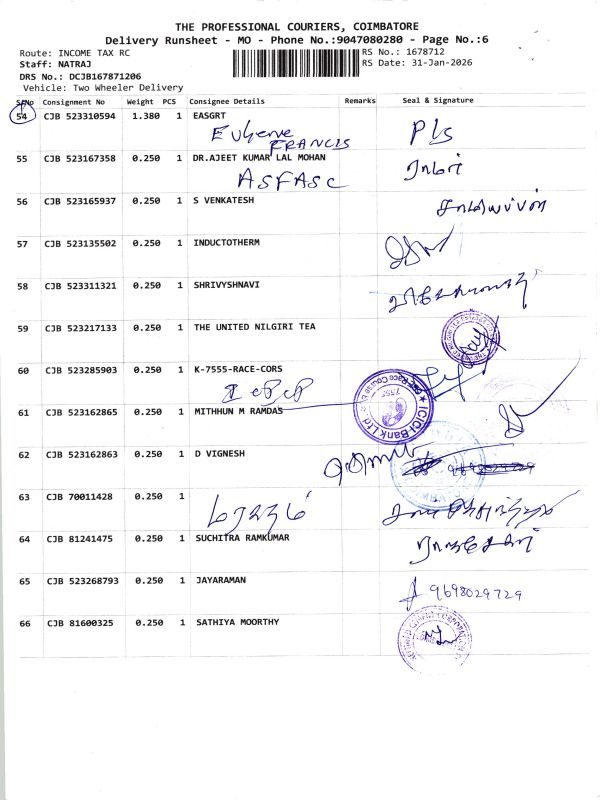 THE PROFESSIONAL COURIERS, COIMBATORE
Delivery Runsheet - MO - Phone No.:9047080280 - Page No.:6
Route: INCOME TAX RC RS No.: 1678712
Staff: NATRAJ RS Date: 31-Jan-2026
DRS No.: DCJB167871206
Vehicle: Two Wheeler Delivery
Sr.No Consignment No Weight PCS Consignee Details Remarks Seal & Signature
54 CJB 523310594 1.380 1 EASGRT
Eugene FRANCIS Pls
55 CJB 523167358 0.250 1 DR.AJEET KUMAR LAL MOHAN
ASFASC
56 CJB 523165937 0.250 1 S VENKATESH
57 CJB 523135502 0.250 1 INDUCTOTHERM
58 CJB 523311321 0.250 1 SHRIVYSHNAVI
59 CJB 523217133 0.250 1 THE UNITED NILGIRI TEA
60 CJB 523285903 0.250 1 K-7555-RACE-CORS
ICICI Bank Ltd
61 CJB 523162865 0.250 1 MITHHUN M RAMDAS
62 CJB 523162863 0.250 1 D VIGNESH
63 CJB 70011428 0.250 1
64 CJB 81241475 0.250 1 SUCHITRA RAMKUMAR
65 CJB 523268793 0.250 1 JAYARAMAN
9698029729
66 CJB 81600325 0.250 1 SATHIYA MOORTHY